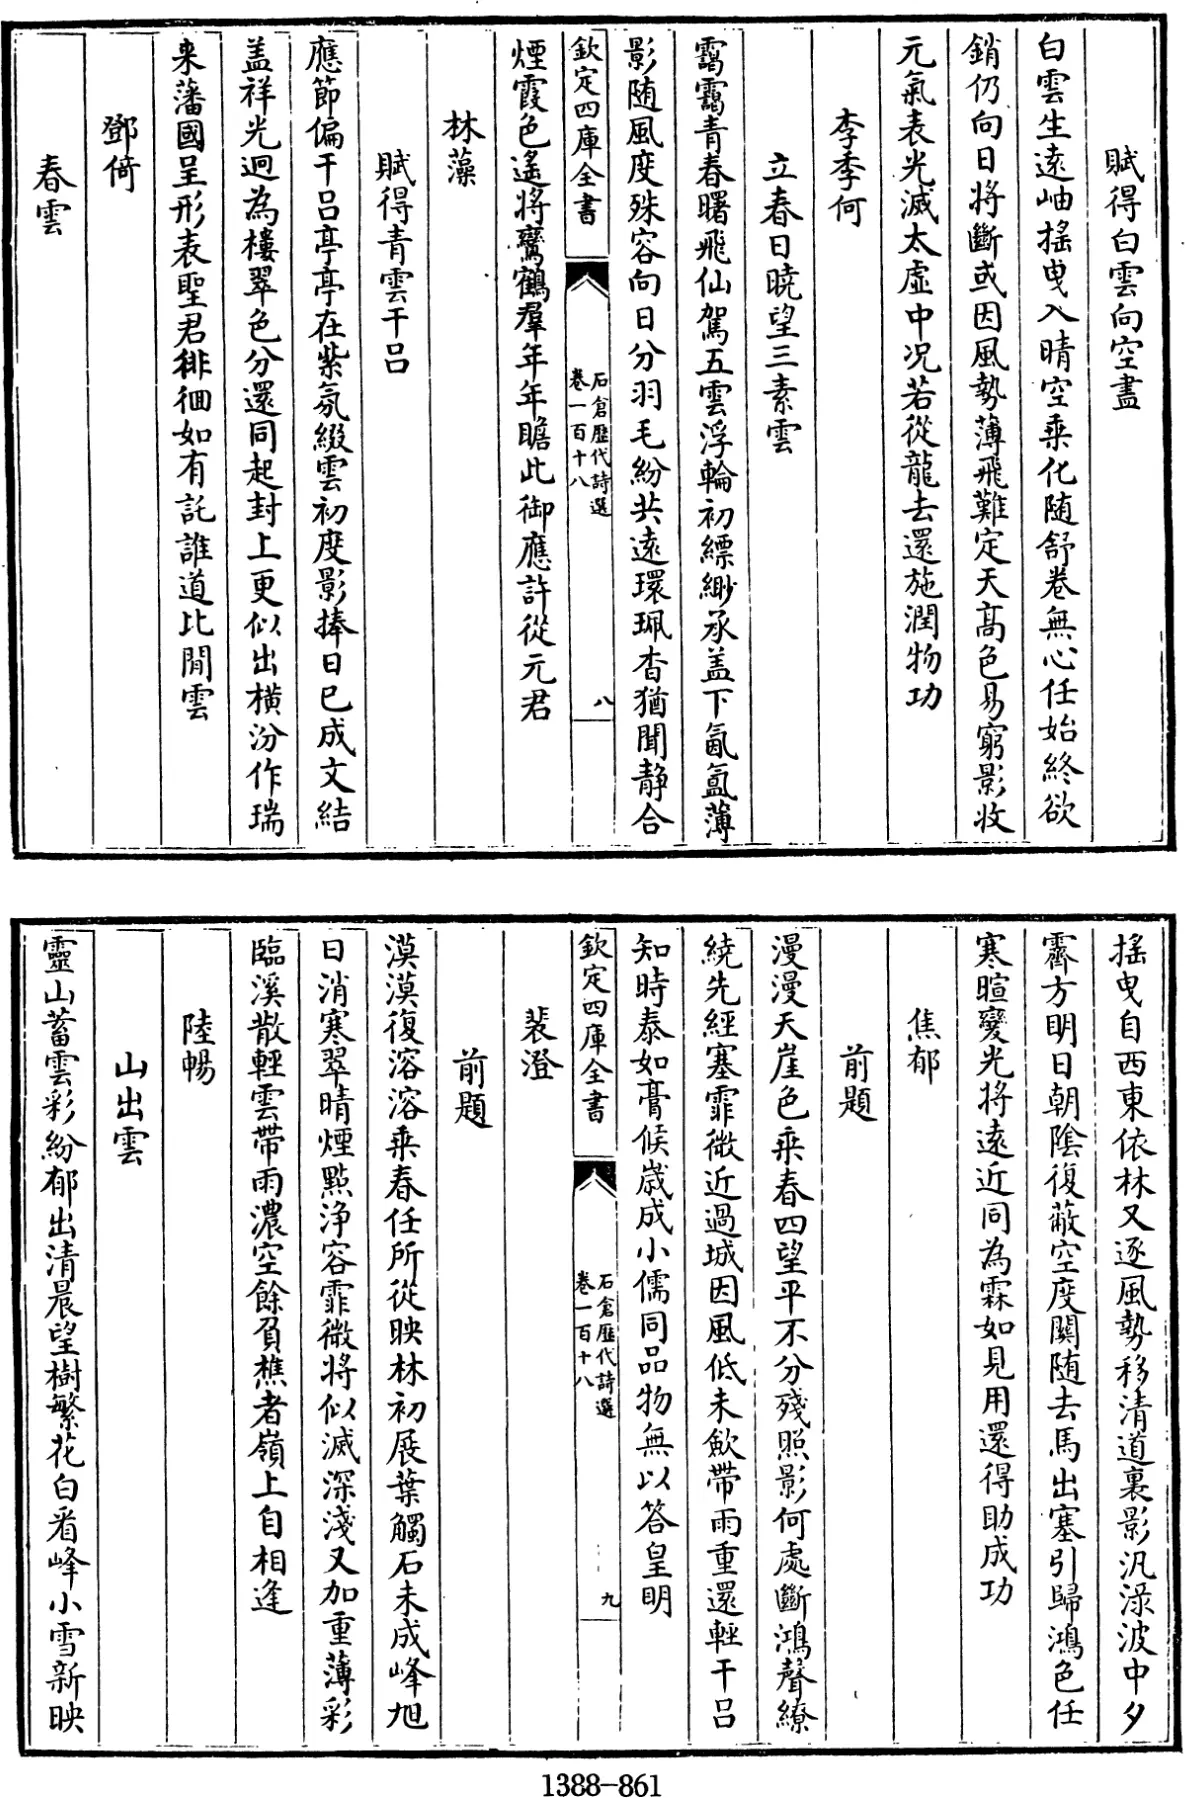 賦得白雲向空盡
白雲生遠岫搖曳入晴空乗化随舒卷無心任始終欲
銷仍向日將斷或因風勢薄飛難定天髙色易窮影收
元氣表光滅太虛中况若從龍去還施潤物功
李季何
立春日曉望三素雲
靄靄青春曙飛仙駕五雲浮輪初縹緲承盖下氤氲薄
影随風度殊容向日分羽毛紛共遠環珮杳猶聞静合
欽定四庫全書
石倉歷代詩選
卷一百十八
八
煙霞色遙將鸞鶴羣年年瞻此御應許從元君
林藻
賦得青雲干吕
應節偏干吕亭亭在紫氛綴雲初度影捧日已成文結
盖祥光迥為樓翠色分還同起封上更似出橫汾作瑞
来藩國呈形表聖君徘徊如有託誰道比閒雲
鄧倚
春雲
搖曳自西東依林又逐風勢移清道裏影汎渌波中夕
霽方明日朝陰復蔽空度關随去馬出塞引歸鴻色任
寒暄變光將遠近同為霖如見用還得助成功
焦郁
前題
漫漫天崖色乗春四望平不分殘照影何處斷鴻聲繚
繞先經塞霏微近過城因風低未歛帶雨重還輕干吕
知時泰如膏候歳成小儒同品物無以答皇明
欽定四庫全書
石倉歷代詩選
卷一百十八
九
裴澄
前題
漠漠復溶溶乗春任所從映林初展葉觸石未成峰旭
日消寒翠晴煙㸃浄容霏微將似滅深淺又加重薄彩
臨溪散輕雲帶雨濃空餘負樵者嶺上自相逢
陸暢
山出雲
靈山蓄雲彩紛郁出清晨望樹繁花白看峰小雪新映
1388-861